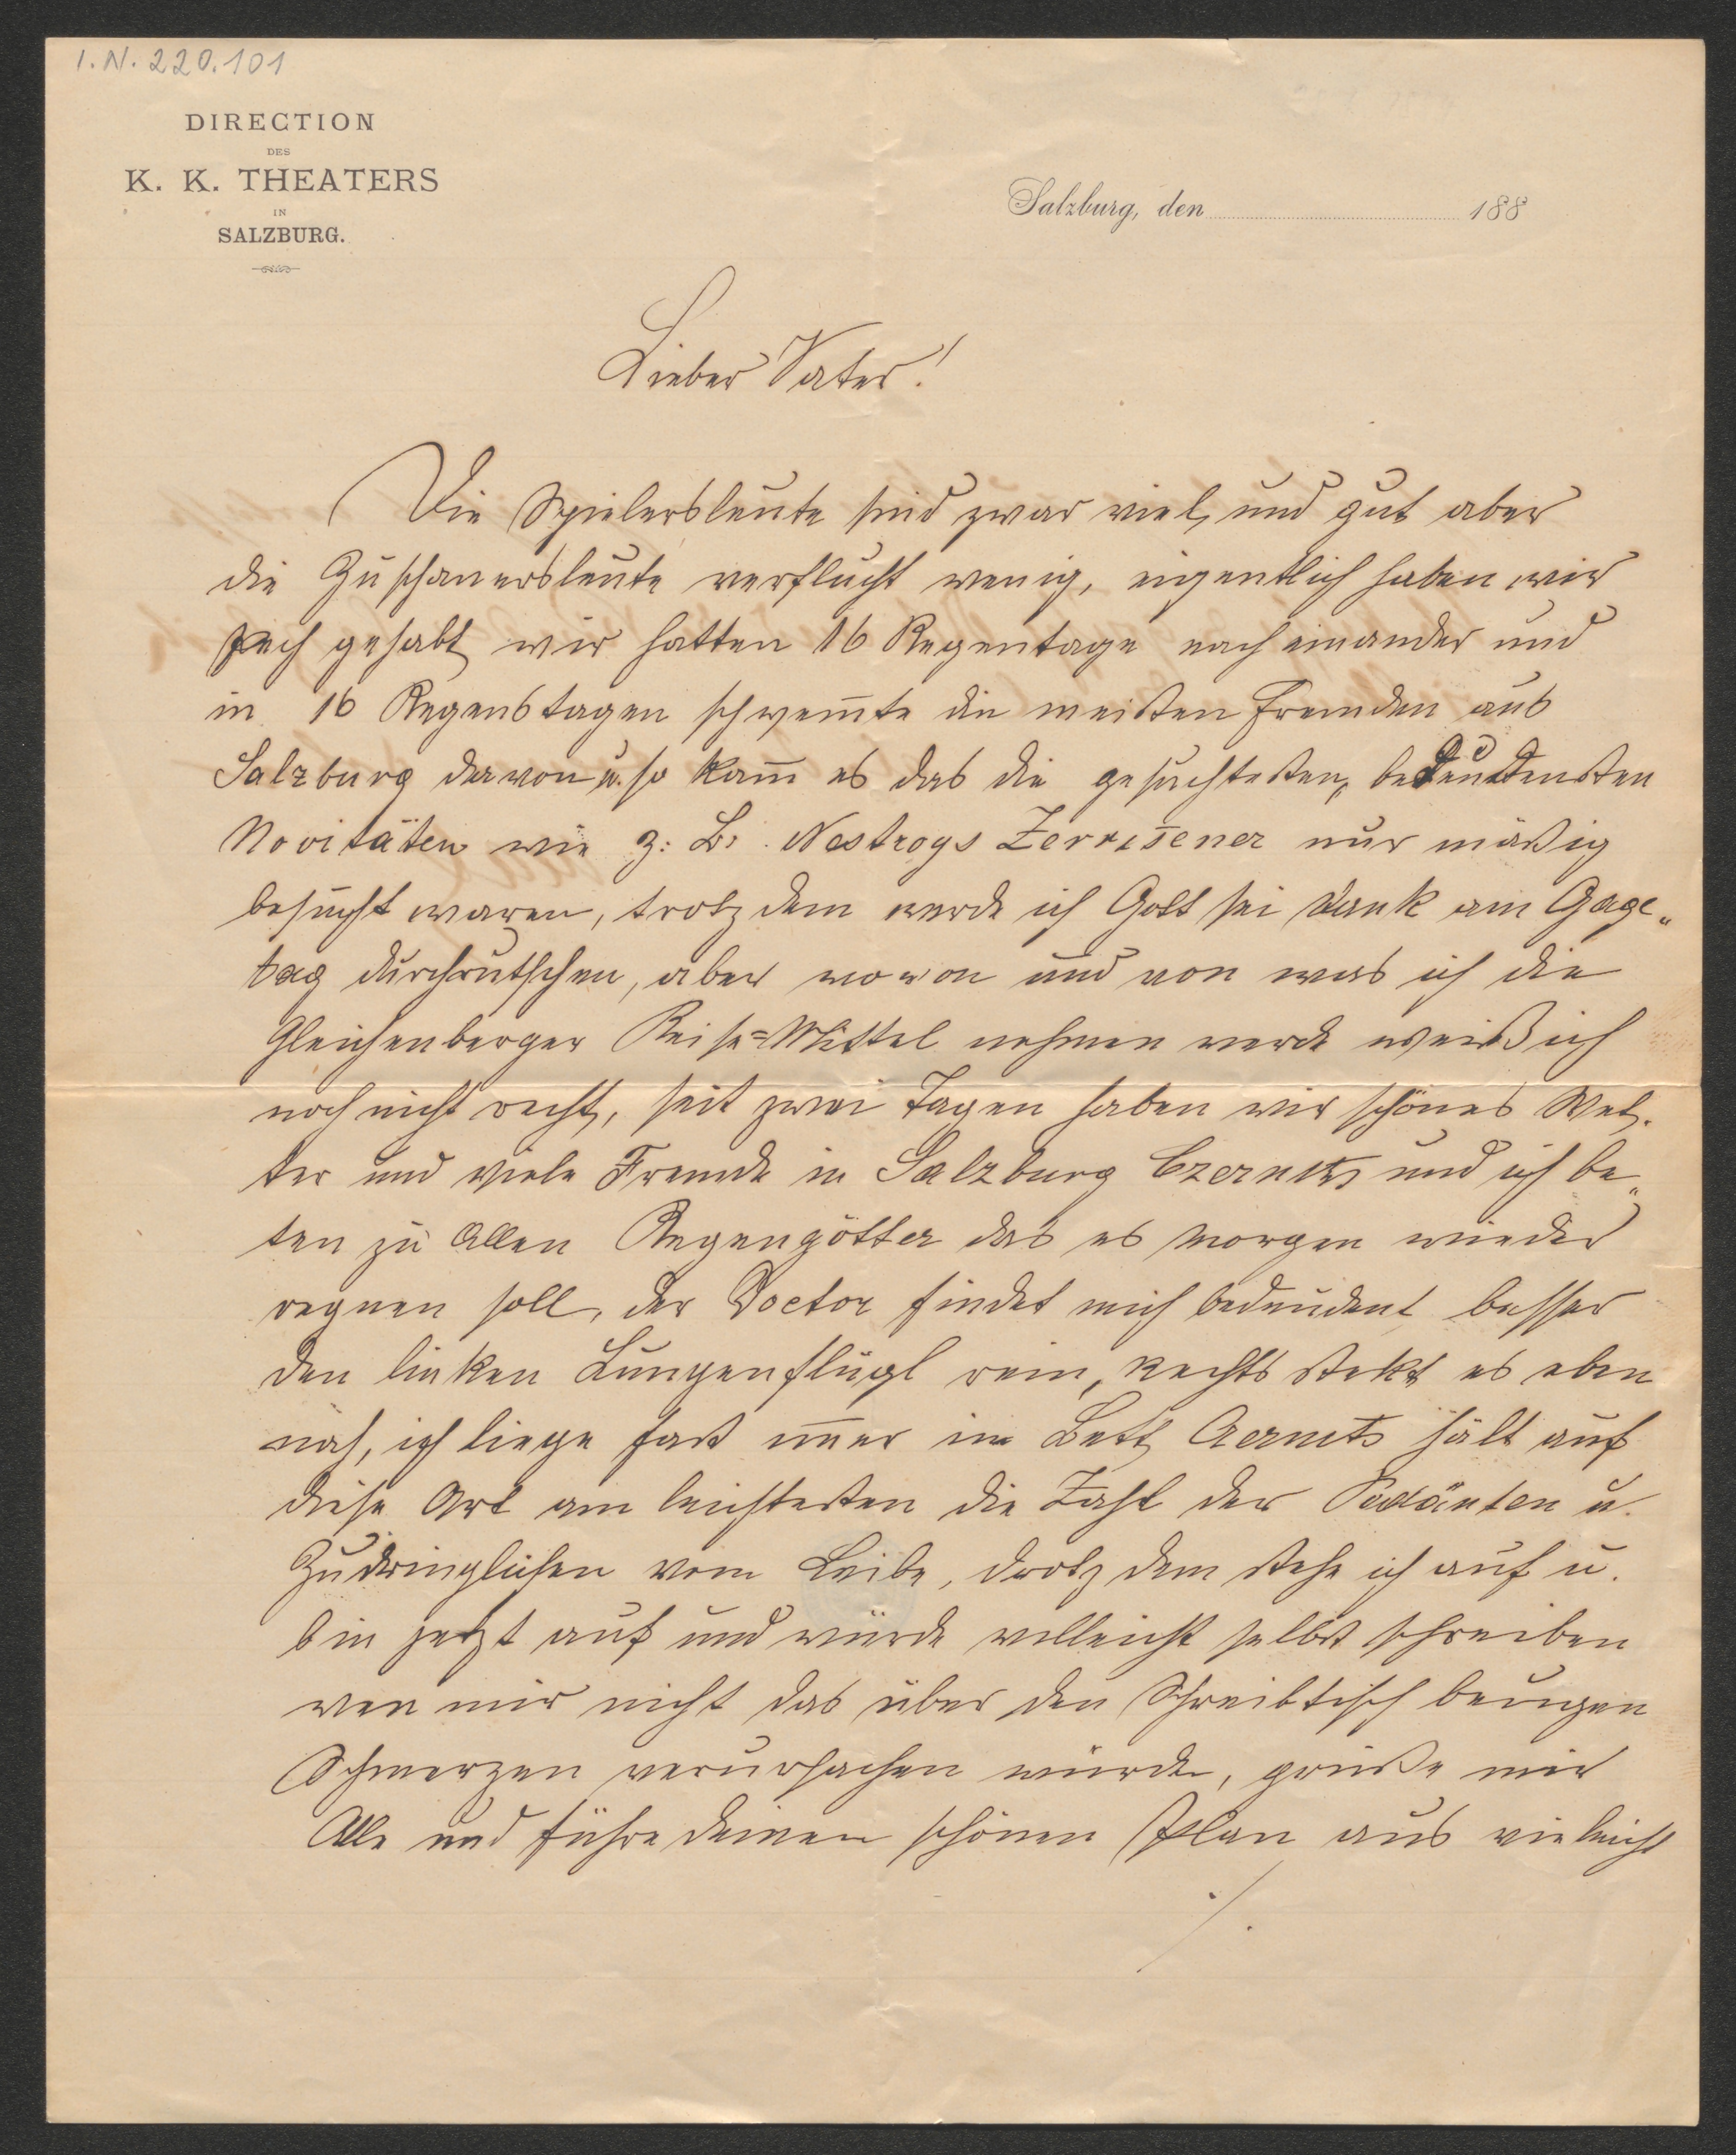 I.N. 220.101
DIRECTION
DES
K. K. THEATERS
IN
SALZBURG.
Salzburg, den 188
Lieber Vater!
Die Spielersleute sind zwar viel, und gut aber
die Zuschauersleute verflucht wenig, eigentlich haben wir
Pech gehabt, wir hatten 16 Regentage nach einander und
in 16 Regenstagen schwem̄te die meisten Fremden aus
Salzburg davon u. so kam̄ es das die gesuchtesten, bedeutensten
Novitäten wie z: B: Nestroys Zerris̄ener nur mäßig
besucht waren, trotz dem werde ich Gott sei Dank am Gage„
tag durchrutschen, aber wovon und von was ich die
Gleichenberger Reise=Mittel nehmen werde weiß ich
noch nicht recht, seit zwei Tagen haben wir schönes Wet,
ter und viele Fremde in Salzburg Czernits und ich be„
ten zu Allen Regengötter das es morgen wieder
regnen soll, der Doctor findet mich bedeudent besser
den linken Lungenflügl rein, Rechts stekt es eben
noch, ich liege fast im̄er im Bett, Czernits hält auf
diese Art am leichtesten die Zahl der Pedänten u.
Zudringlichen vom Leibe, drotz dem stehe ich auf u.
bin jetzt auf und würde velleicht selbst schreiben
wen mir nicht das über den Schreibtisch beugen
Schmerzen verursachen würde, grüße mir
Alle und führe deinen schönen Plan aus vieleicht
./.